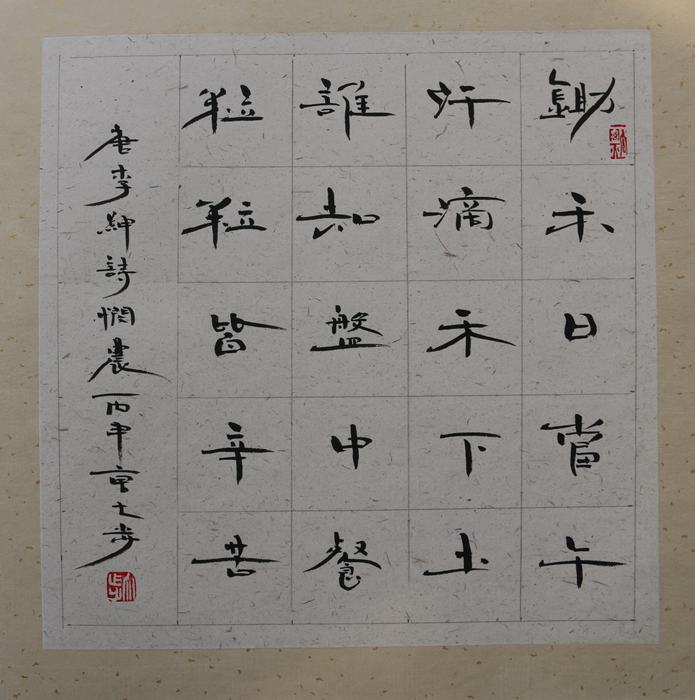 鋤禾日當午
汗滴禾下土
誰知盤中餐
粒粒皆辛苦
唐李紳詩憫農丙申大步